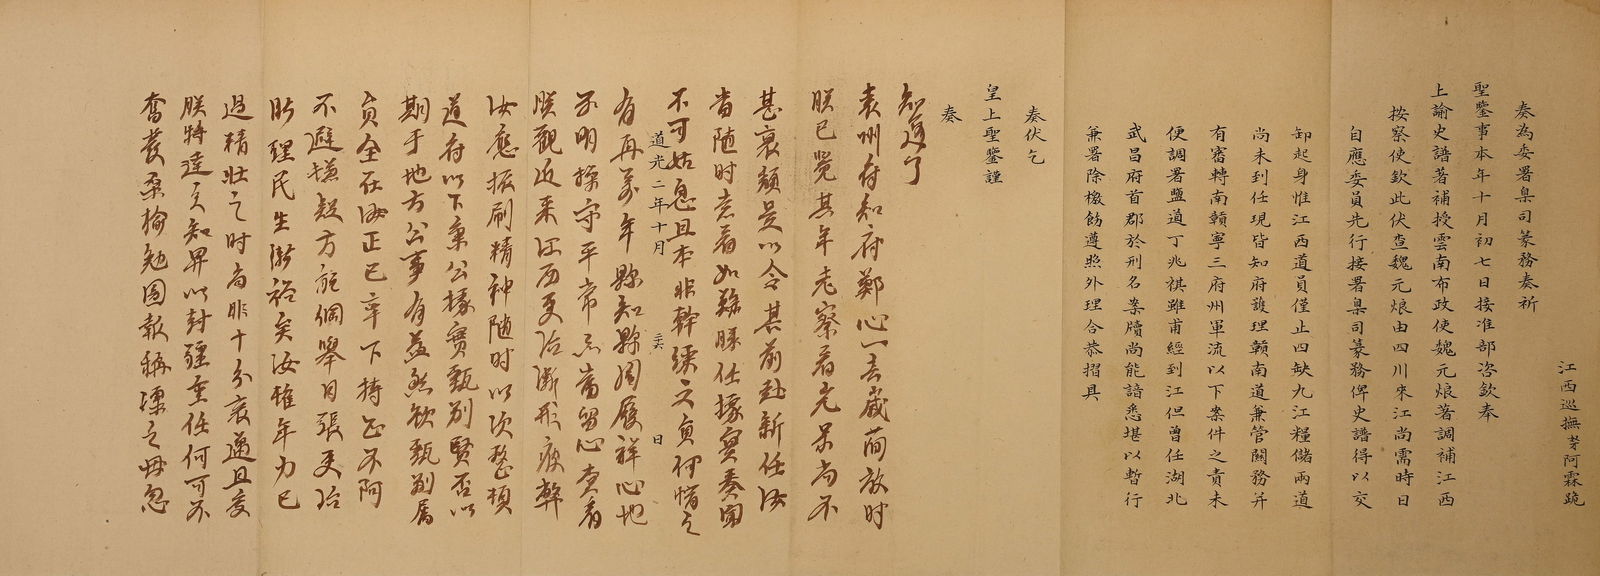 江西巡撫李阿霖跪
奏為委署臬司篆務奏祈
聖鑒事本年十月初七日接准部咨欽奉
上諭史譜著補授雲南布政使魏元烺著調補江西
按察使欽此伏查魏元烺由四川來江尚需時日
自應委員先行接署臬司篆務俾史譜得以交
卸起身惟江西道員僅止四缺九江糧儲兩道
尚未到任現皆知府護理贛南道兼管關務并
有審轉南贛寧三府州軍流以下案件之責未
便調署鹽道丁兆祺雖甫經到江但曾任湖北
武昌府首郡於刑名案牘尚能諳悉堪以暫行
兼署除檄飭遵照外理合恭摺具
奏伏乞
皇上聖鑒謹
奏
知道了
袁州府知府鄭心一去歲簡放時
朕已覺其年老察看光景尚不
甚衰頹是以令其前赴新任汝
當随时察看如難勝任據實奏聞
不可姑息且本非幹練之員何惜之
道光二年十月 日
有再萬年縣知縣周履祥心地
不明操守平常亦當留心查看
朕觀近来江西吏治漸形疲弊
汝應振刷精神随时以次整頓
道府以下秉公據實甄别賢否以
期于地方公事有益然欲甄别属
員全在汝正己率下持正不阿
不避嫌疑方能綱舉目張吏治
既理民生漸裕矣汝雖年力已
過精壯之时尚非十分衰邁且受
朕特達之知畀以封疆重任何可不
奮發桑榆勉圖報稱懍之毋忽